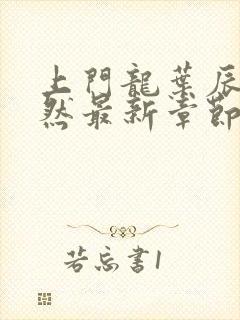 上門龍葉辰
然最新章節
若忘書1